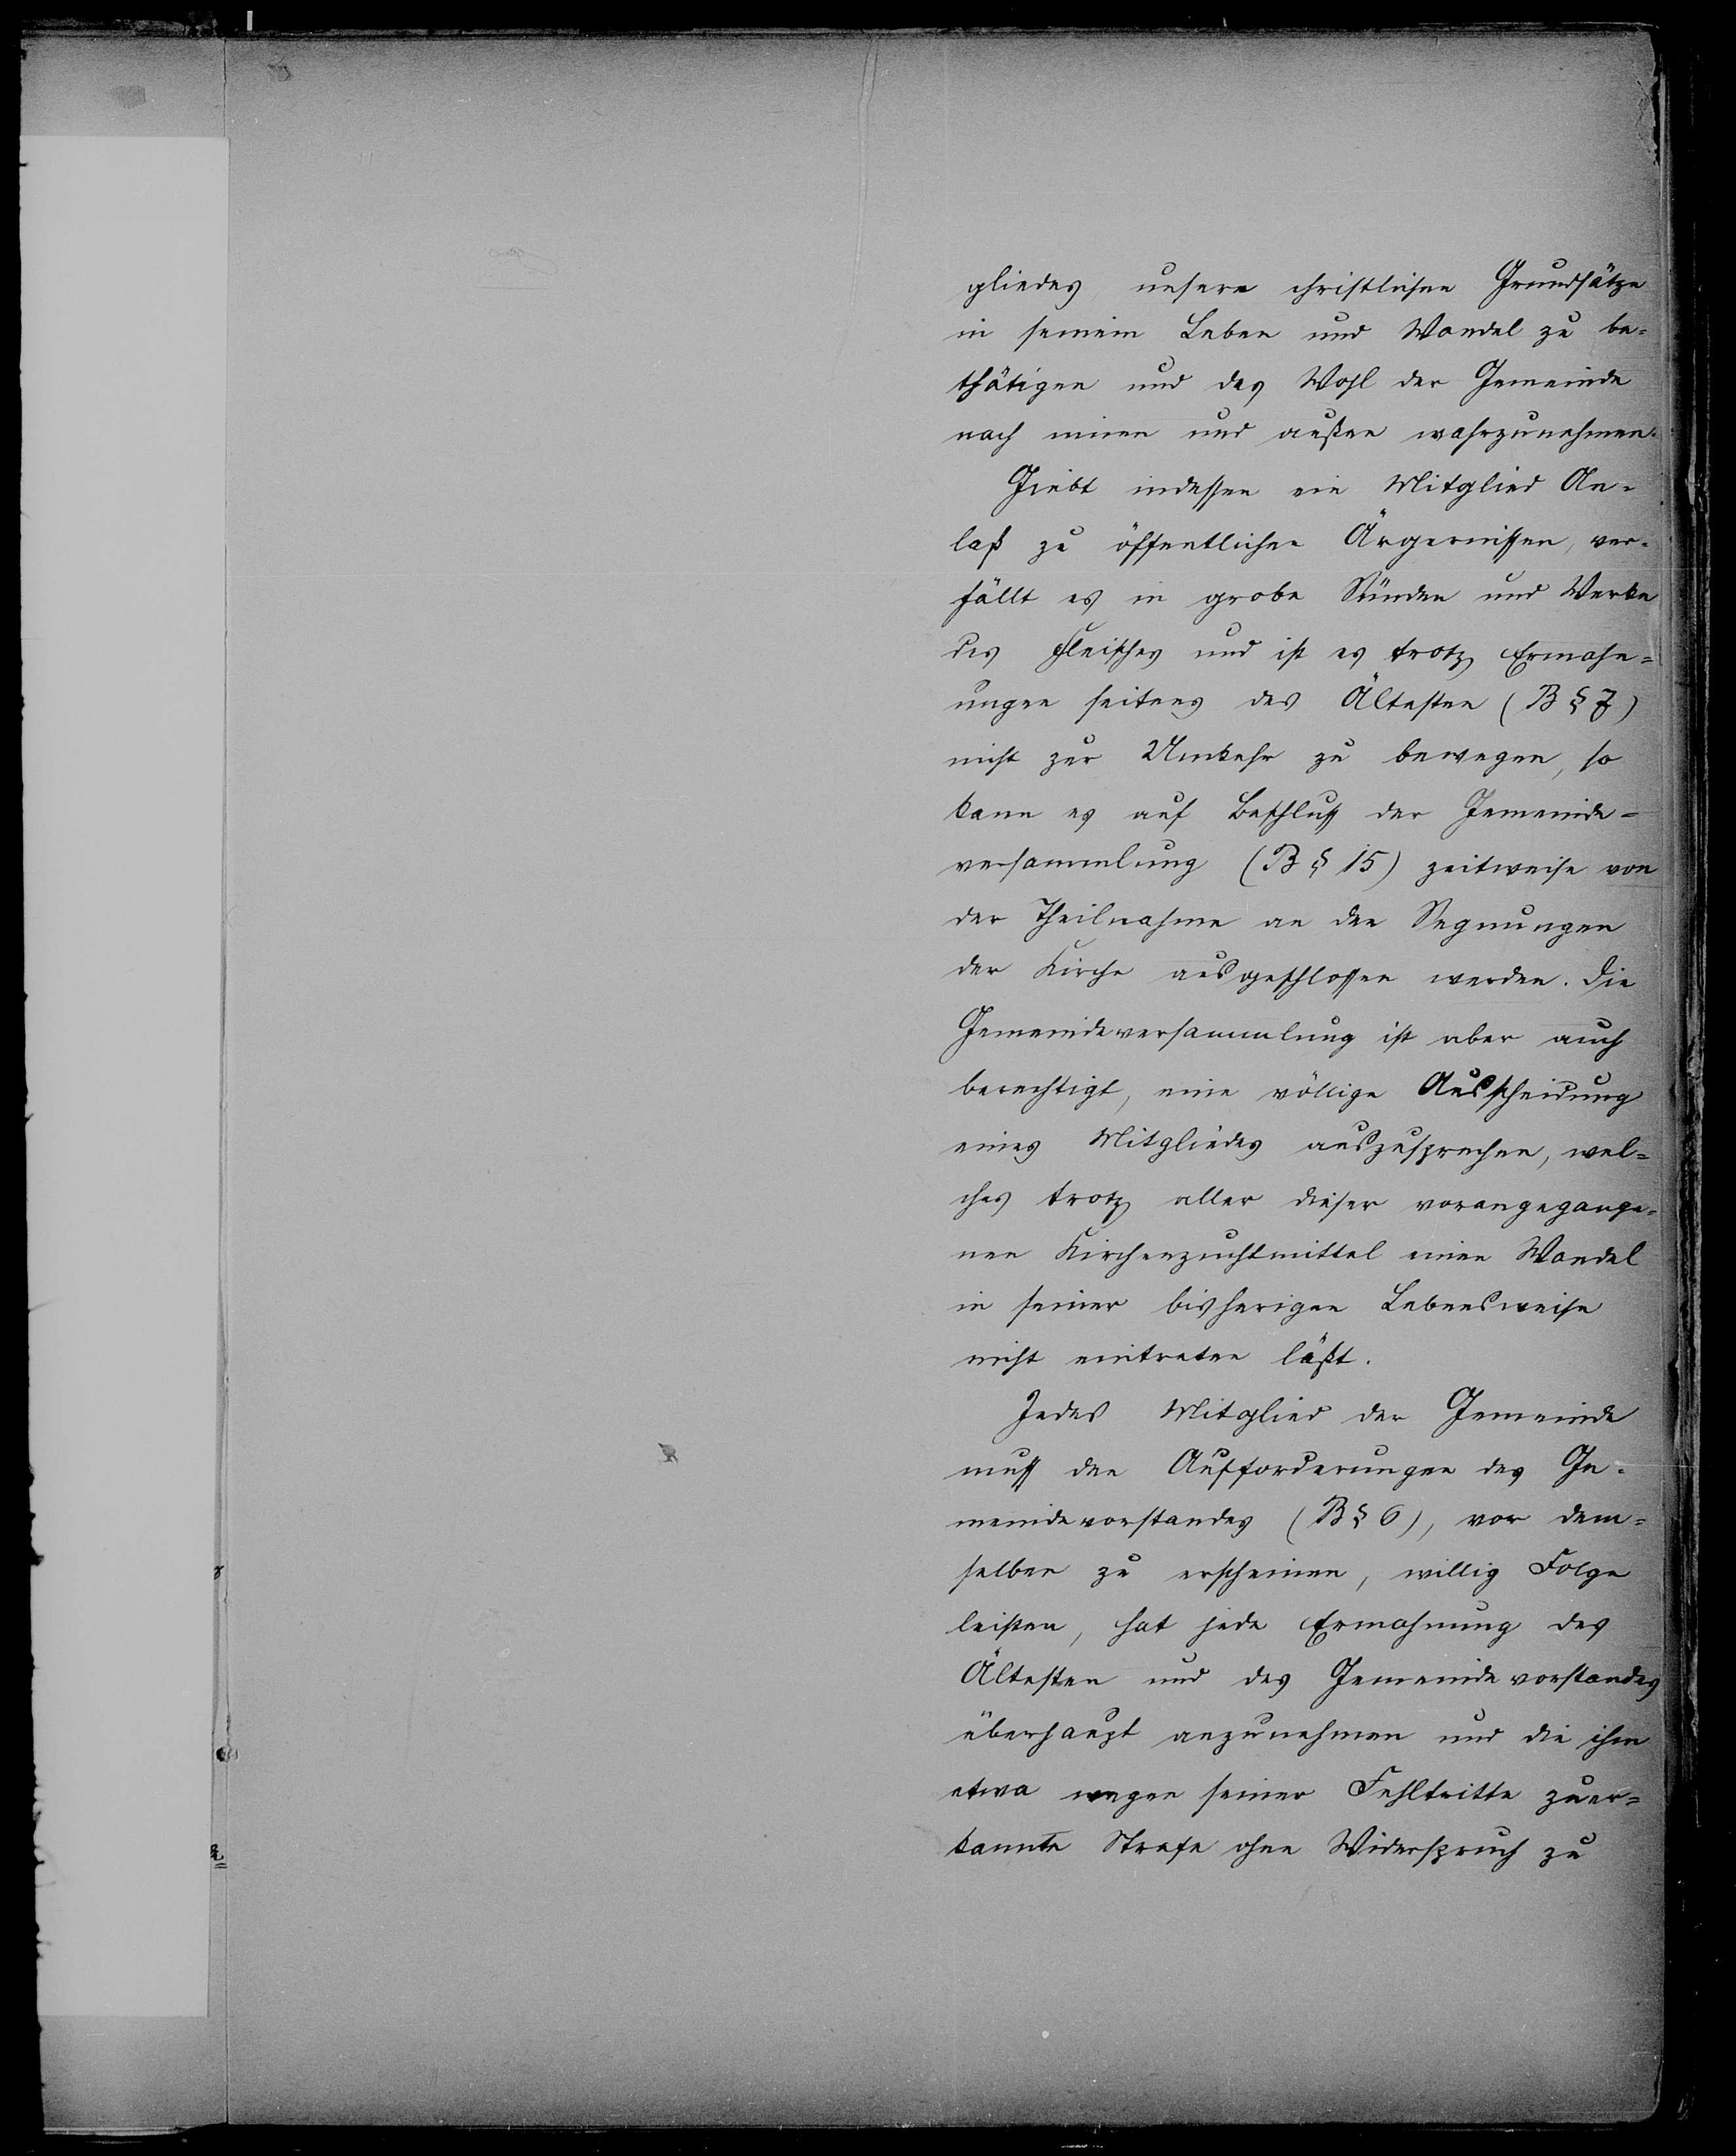 gliedes, unsere christlichen Grundsätze
in seinem Leben und Wandel zu be-
thätigen und das Wohl der Gemeinde
nach innen und außen wahrzunehmen.
Giebt indessen ein Mitglied An-
laß zu öffentlichen Ärgernissen, ver-
fällt es in grobe Sünden und Werke
des Fleisches und ist es trotz Ermahn-
ungen seitens des Ältesten (B § 7)
nicht zur Umkehr zu bewegen, so
kann es auf Beschluss der Gemeinde-
versammlung (B § 15) zeitweise von
der Theilnahme an den Segnungen
der Kirche ausgeschlossen werden. Die
Gemeindeversammlung ist aber auch
berechtigt, eine völlige Ausscheidung
eines Mitgliedes auszusprechen, wel-
ches trotz aller dieser vorangegange-
nen Kirchenzuchtmittel einen Wandel
in seiner bisherigen Lebensweise
nicht eintreten läßt.
Jedes Mitglied der Gemeinde
muss den Aufforderungen des Ge-
meindevorstandes (B § 6), vor dem-
selben zu erscheinen, willig Folge
leisten, hat jede Ermahnung des
Ältesten und des Gemeindevorstandes
überhaupt anzunehmen und die ihm
etwa wegen seiner Fehltritte zuer-
kannte Strafe ohne Widerspruch zu